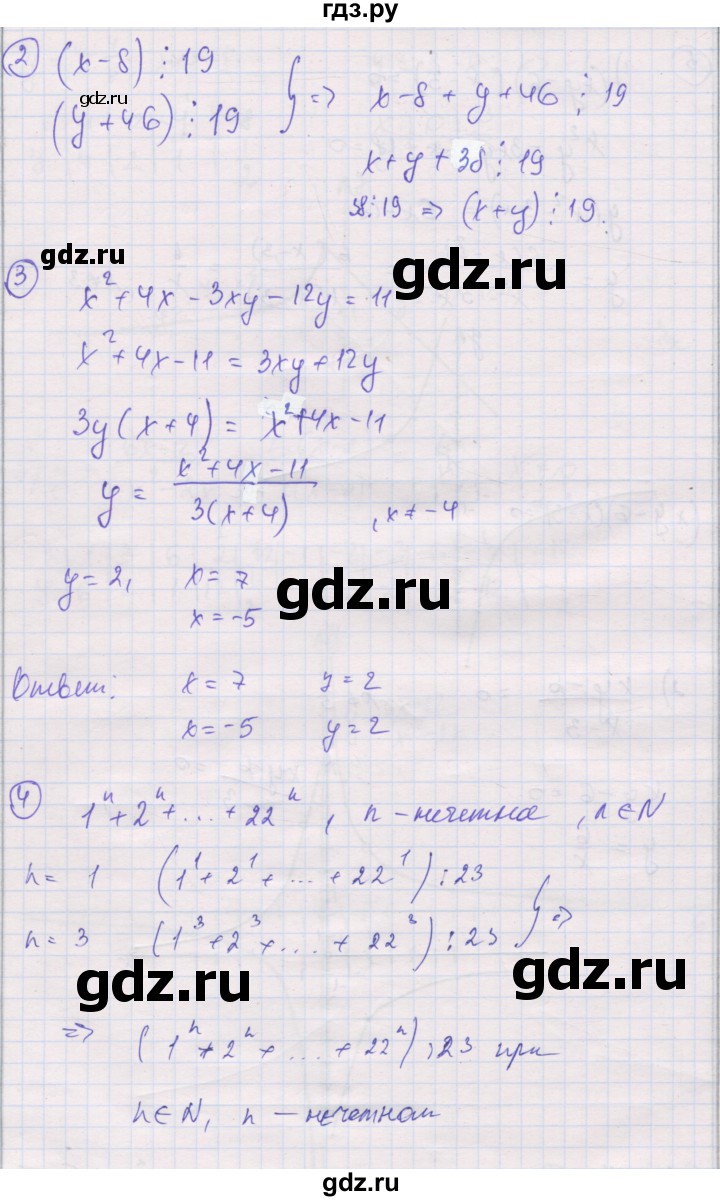 гдз.ру
2 (x-8) ⋮ 19
(y+46) ⋮ 19 } => x-8+y+46 ⋮ 19
gdz.ru
x+y+38 ⋮ 19
38 ⋮ 19 => (x+y) ⋮ 19.
gdz.ru
3 x²+4x-3xy-12y=11
gdz.ru
x²+4x-11 = 3xy+12y
3y(x+4) = x²+4x-11
y = (x²+4x-11)/(3(x+4)) , x≠-4
y=2, x=7
gdz.ru
x=-5
Ответ: x=7 y=2
x=-5 y=2
gdz.ru
4 1ⁿ+2ⁿ+...+22ⁿ, n-нечетное, n∈N
n= 1 (1¹+2¹+...+22¹) ⋮ 23
n= 3 (1³+2³+...+22³) ⋮ 23 } =>
gdz.ru
gdz.ru
=> (1ⁿ+2ⁿ+...+22ⁿ) ⋮ 23 при
n∈N, n - нечетном
gdz.ru